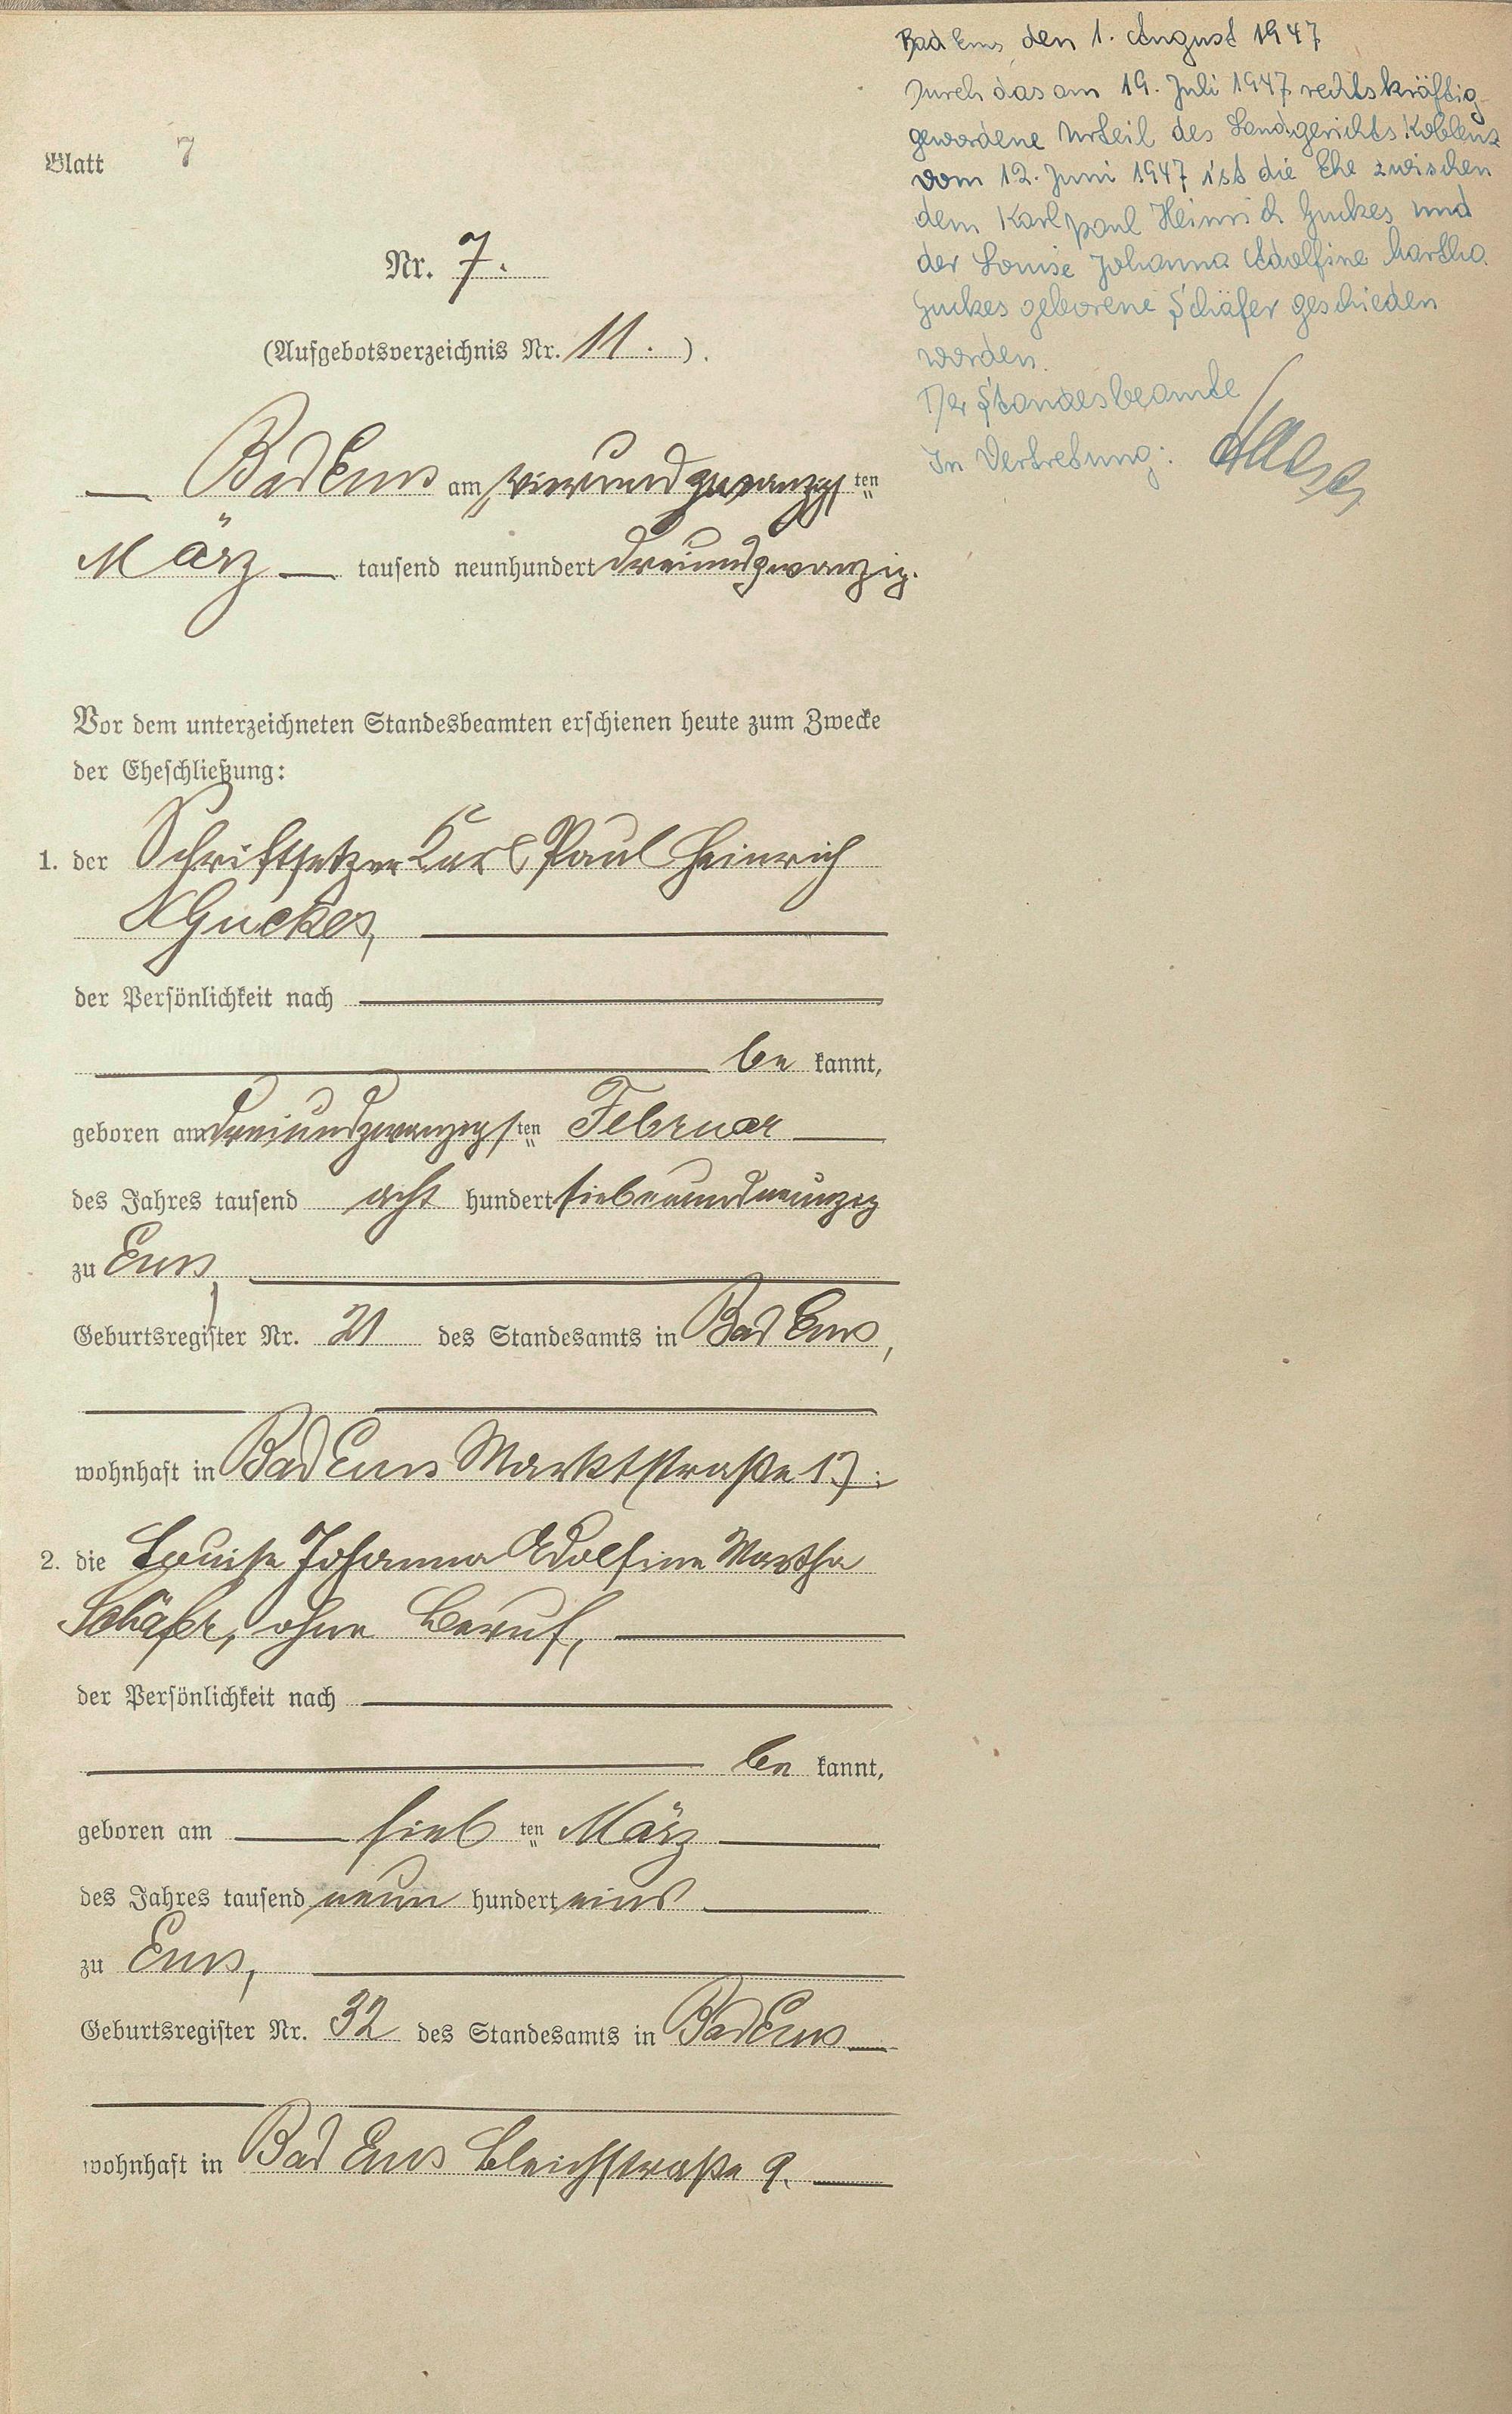 Blatt 7
Nr. 7.
(Aufgebotsverzeichnis Nr. 11. ).
Bad Ems am vierundzwanzigsten
März tausend neunhundert dreiundzwanzig.
Vor dem unterzeichneten Standesbeamten erschienen heute zum Zwecke
der Eheschließung:
1. der Schriftsetzer Karl Paul Heinrich
Guckes,
der Persönlichkeit nach
be kannt,
geboren am dreiundzwanzigsten Februar
des Jahres tausend acht hundert siebenundneunzig
zu Ems,
Geburtsregister Nr. 21 des Standesamts in Bad Ems,
wohnhaft in Bad Ems Marktstraße 17;
2. die Louise Johanna Adolfine Martha
Schäfer, ohne Beruf,
der Persönlichkeit nach
be kannt,
geboren am sieb ten März
des Jahres tausend neun hundert eins
zu Ems,
Geburtsregister Nr. 32 des Standesamts in Bad Ems
wohnhaft in Bad Ems Bleichstraße 9.
Bad Ems, den 1. August 1947
Durch das am 19. Juli 1947 rechtskräftig
gewordene Urteil des Landgerichts Koblenz
vom 12. Juni 1947 ist die Ehe zwischen
dem Karl Paul Heinrich Guckes und
der Louise Johanna Adolfine Martha
Guckes geborene Schäfer geschieden
worden.
Der Standesbeamte
In Vertretung: